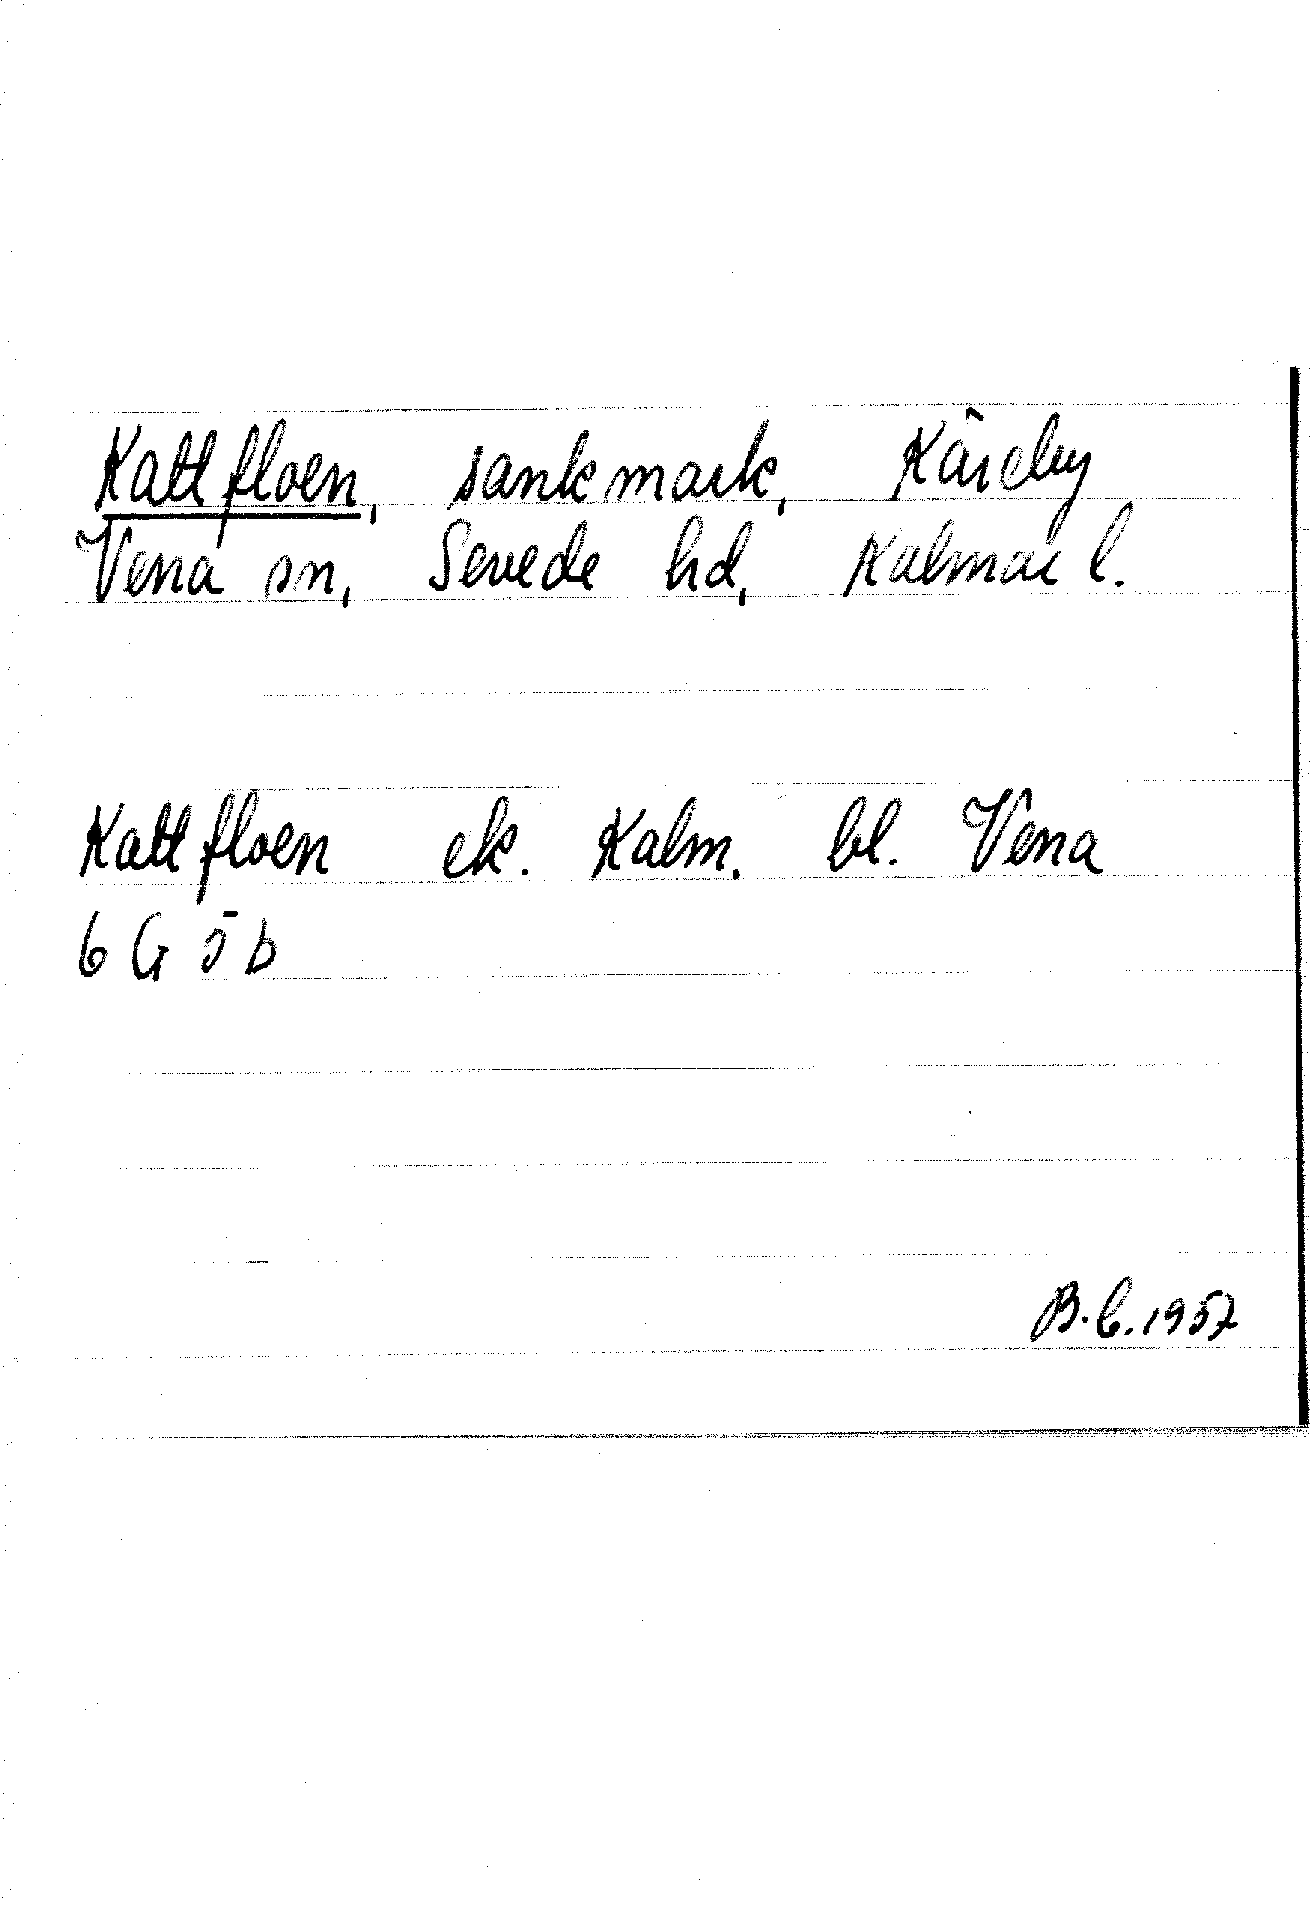 Kattfloen, sankmark, Kåreby
Vena sn, Sevede hd, Kalmar l.
Kattfloen ek. Kalm. bl. Vena
6 G 5 b
B.C. 1957